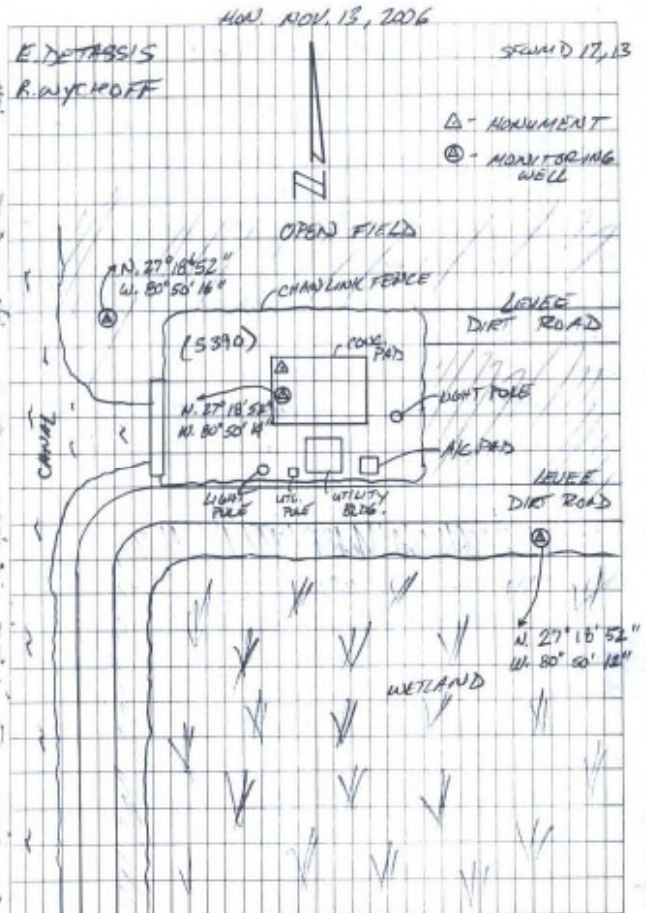 MON. NOV. 13, 2006
E. DETASSIS
R. WYCHOFF
SFWMD 17,13
△ - MONUMENT
- MONITORING
WELL
OPEN FIELD
N. 27° 18' 52"
W. 80° 50' 16"
CHAINLINK FENCE
LEVEE
DIRT ROAD
(5390)
CONC.
PAD
N. 27° 18' 52"
W. 80° 50' 14"
LIGHT POLE
CANAL
A/C PAD
LIGHT
POLE
UTIL.
POLE
UTILITY
BLDG.
LEVEE
DIRT ROAD
N. 27° 18' 52"
W. 80° 50' 12"
WETLAND